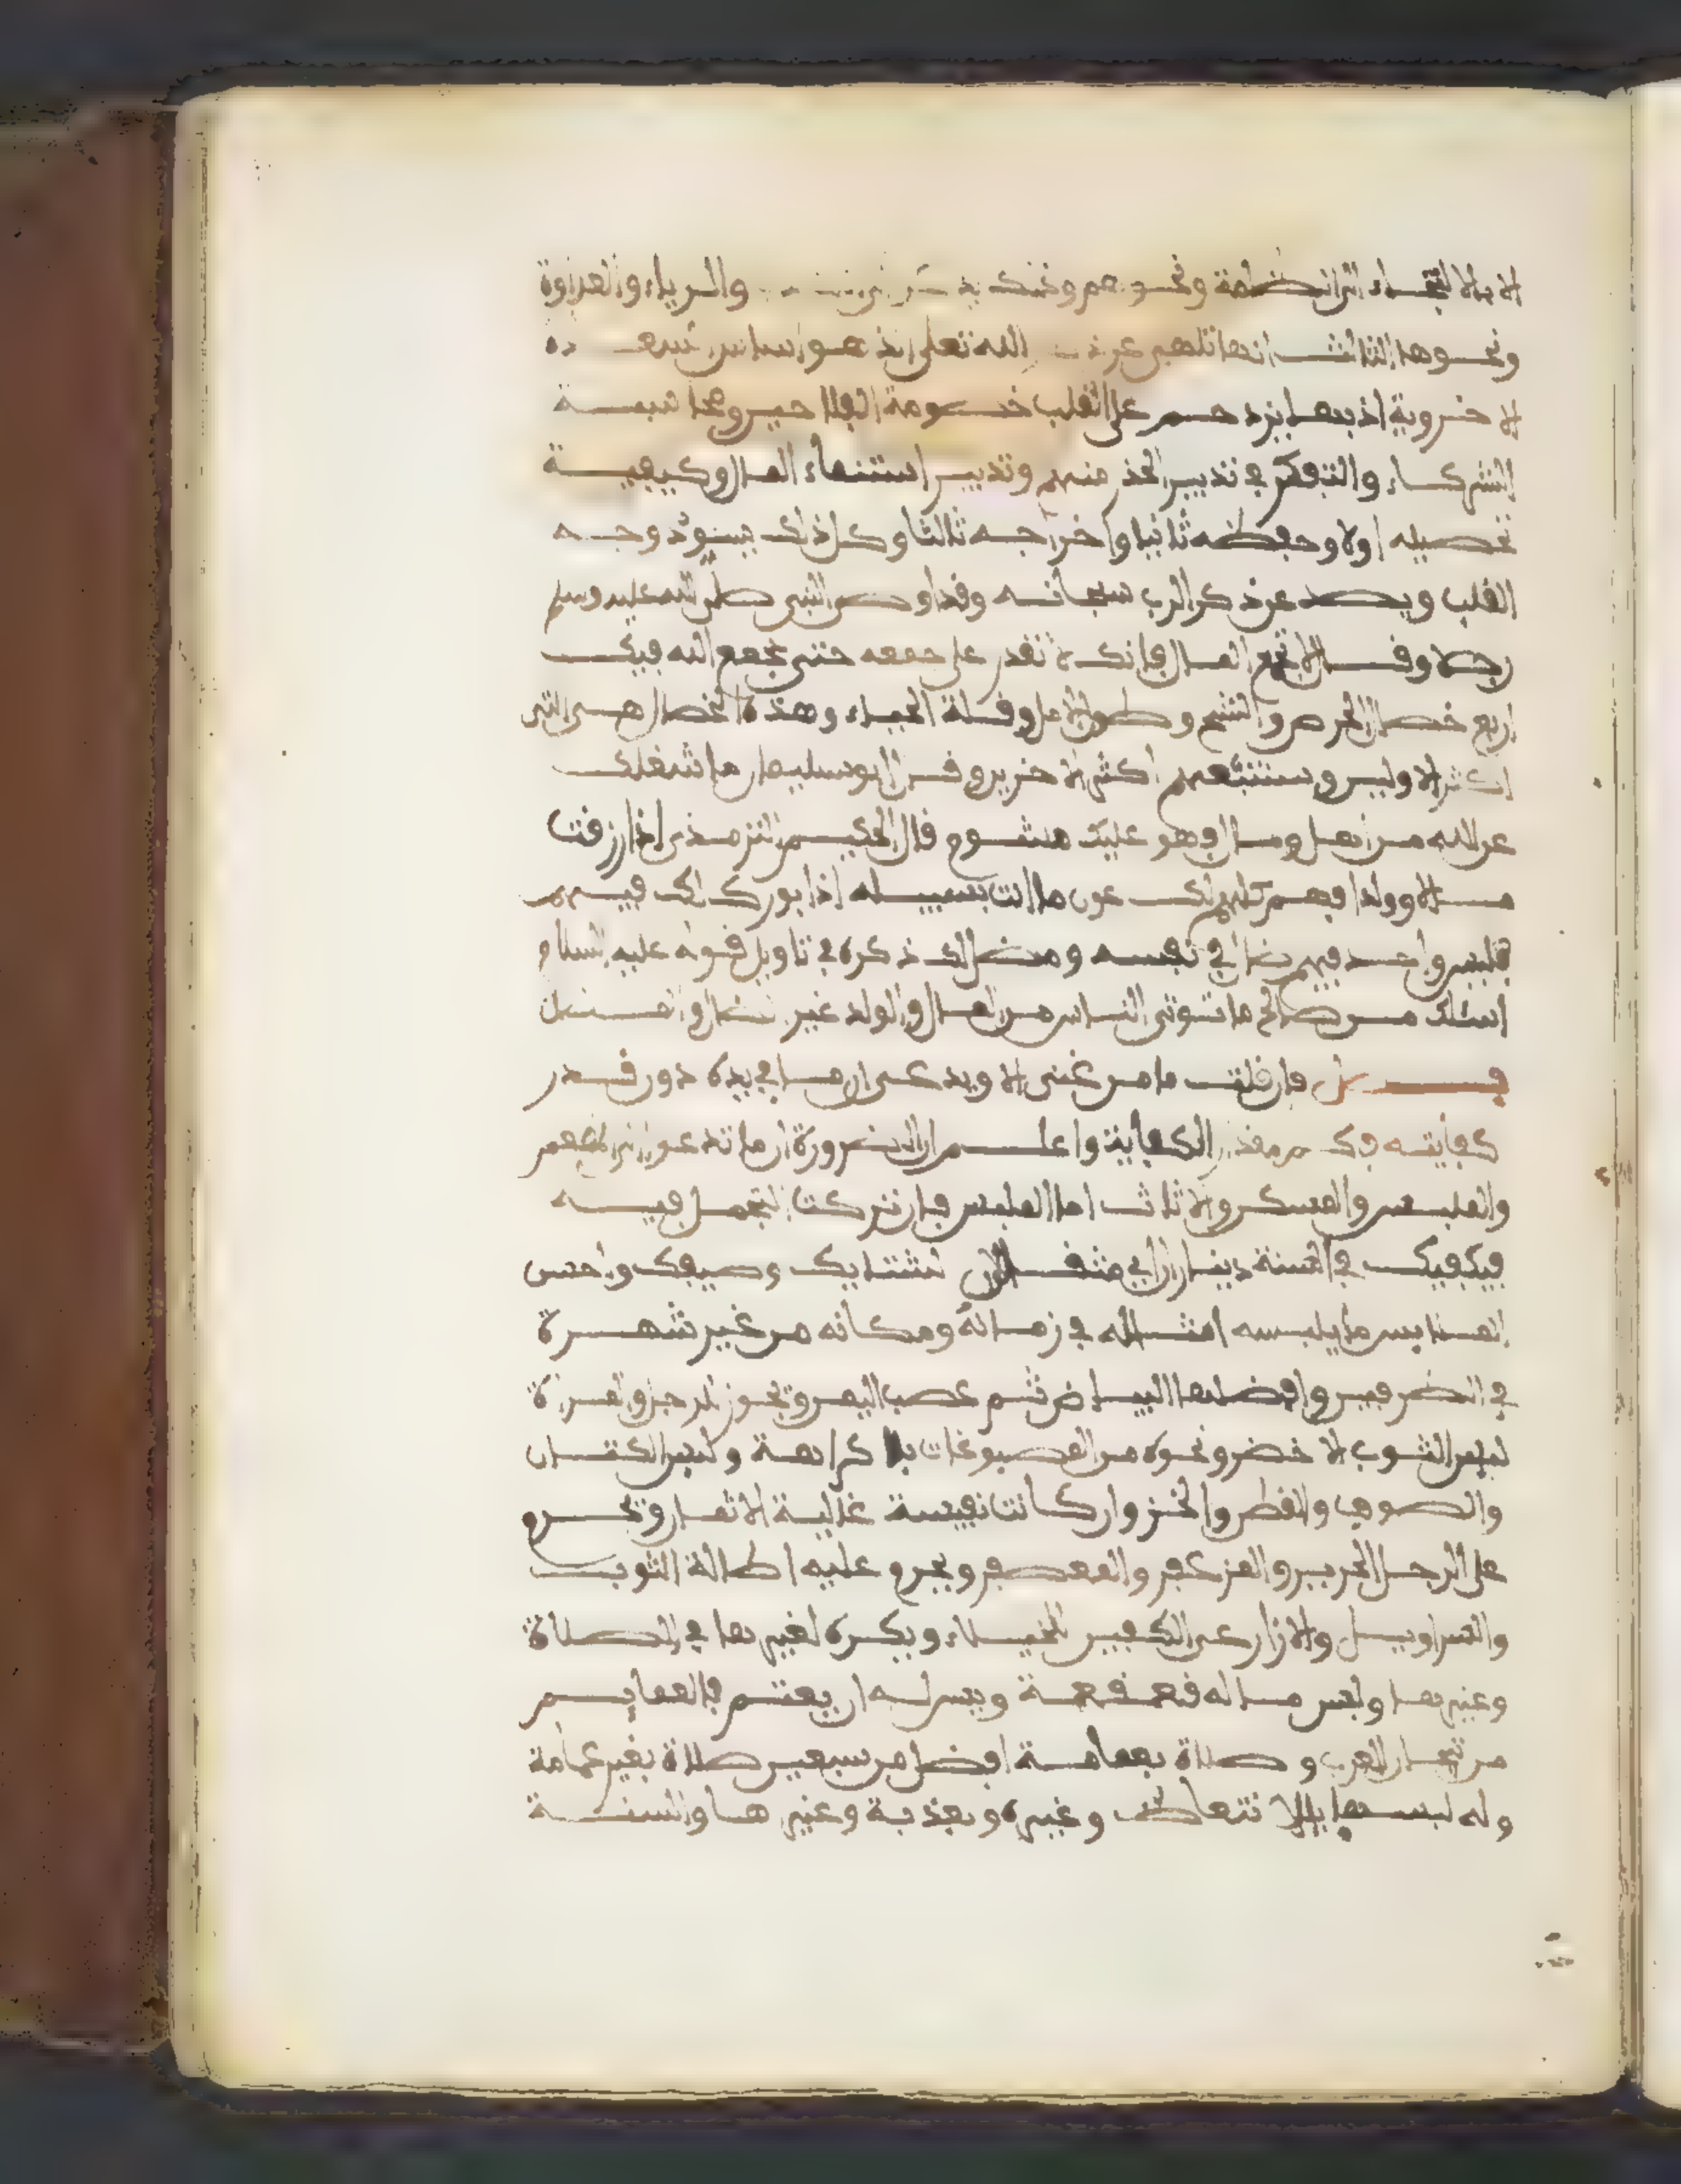 الا بالالتجاء الى الظلمة ونحوهم والرياء والعداوة
ونحوها الثالث انها تلهي عن ذكر الله تعلى الذى هو اساس السعادة
الاخروية اذ بها يزدحم على القلب خصومة الفلاحين ومحاسبة
الشركاء والتفكر في تدبير الحذر منهم وتدبير استنماء المال وكيفية
تحصيله اولا وحفظه ثانيا واخراجه ثالثا وكل ذلك يسود وجه
القلب ويصد عن ذكر الرب سبحانه وقد اوصى النبي صلى الله عليه وسلم
رجلا وقال لا تجمع المال فانك لا تقدر على جمعه حتى يجمع الله فيك
اربع خصال الحرص والشح وطول الامل وقلة الحياء وهذه الخصال هي التي
اكثر الاولين وستتبعهم اكثر الاخرين وقال ابو سليمان ما شغلك
عن الله من اهل ومال فهو عليك مشوم قال الحكيم الترمذي اذا رزقت
مالا وولدا فهم كلهم لك عون ما انت بسبيله اذا بورك لك فيهم
فليس واحد فيهم ضال في نفسه ومضل لك ذكره في تاويل قوله عليه السلام
اسئلك من صالح ما توتي الناس من المال والولد غير الضال والمضل
فصل فان قلت ما من غني الا ويدعي ان ما في يده دون قدر
كفايته الكفاية واعلم ان الضرورة ان ما تدعوا الى المطعم
والملبس والمسكن والاثاث اما الملبس فان تركت التجمل فيه
فيكفيك في السنة دينار لشتايك وصيفك واحسن
الملابس ما يلبسه امثاله في زمانه ومكانه من غير شهرة
في الطرفين وافضلها البياض ثم عصب اليمن ويجوز للرجل والمراة
لبس الثوب الاخضر ونحوه من المصبوغات بلا كراهة ولبس الكتان
والصوف والقطن والخز وان كانت نفيسة غالية الاثمان ويحرم
على الرجل الحرير والمزعفر والمعصفر ويحرم عليه اطالة الثوب
والسراويل والازار عن الكعبين للخيلاء ويكره لغيرها في الصلاة
وغيرها ولبس ما له قعقعة ويسن له ان يعتم فالعمايم
من تيجان العرب وصلاة بعمامة افضل من سبعين صلاة بغير عمامة
وله لبسها وغيره وبعذبة وغيرها والسنة